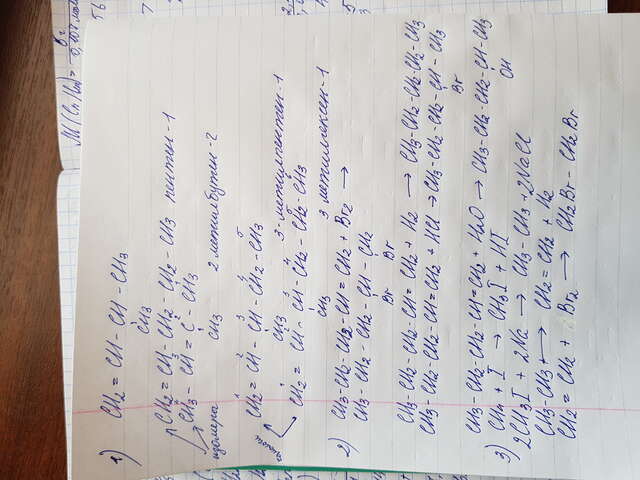 M(CnH2n) = 6г
0,107 моль
56
1) CH2 = CH - CH - CH3
CH3
CH2 = CH - CH2 - CH2 - CH3 пентен-1
CH3 - CH = C - CH3
изомеры CH3 2 метилбутен-2
1 2 3 4 5
CH2 = CH - CH - CH2 - CH3
CH3 3-метилпентен-1
1 2 3 4 5 6
CH2 = CH - CH - CH2 - CH2 - CH3
CH3 3 метилгексен-1
2) CH3-CH2-CH2-CH=CH2 + Br2 →
CH3-CH2-CH2-CH-CH2
Br Br
CH3-CH2-CH2-CH=CH2 + H2 → CH3-CH2-CH2-CH2-CH3
CH3-CH2-CH2-CH=CH2 + HCl → CH3-CH2-CH2-CH-CH3
Br
CH3-CH2-CH2-CH=CH2 + H2O → CH3-CH2-CH2-CH-CH3
OH
3) CH4 + I → CH3I + HI
2CH3I + 2Na → CH3-CH3 + 2NaCl
CH3-CH3 → CH2=CH2 + H2
CH2=CH2 + Br2 → CH2Br-CH2Br